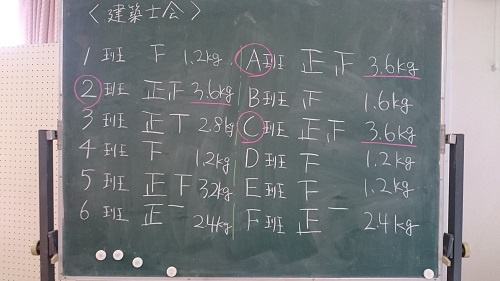 〈建築士会〉
1班 下 1.2kg
2班 正𝍵 3.6kg
3班 正丅 2.8kg
4班 下 1.2kg
5班 正下 3.2kg
6班 正一 2.4kg
A班 正𝍵 3.6kg
B班 𝍵 1.6kg
C班 正𝍵 3.6kg
D班 下 1.2kg
E班 下 1.2kg
F班 正一 2.4kg